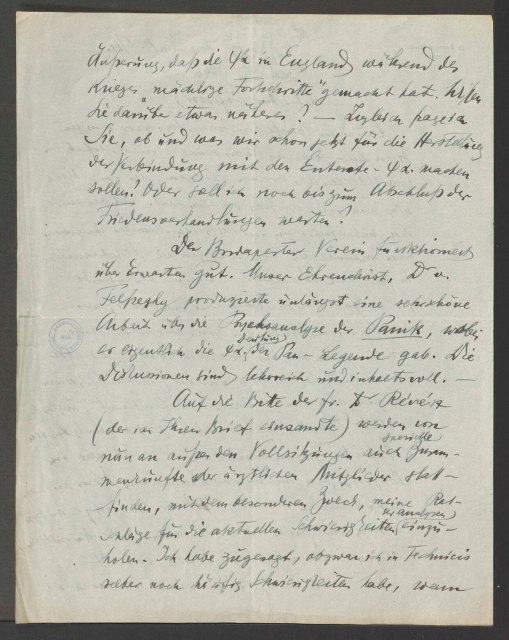 Äußerung, daß die ΨΑ in England während des
Krieges mächtige Fortschritte "gemacht hat. Wissen
Sie darüber etwas näheres? — Zugleich frage ich
Sie, ob und was wir schon jetzt für die Herstellung
der Verbindung mit den Entente-ΨΑ. machen
sollen? Oder soll ich noch bis zum Abschluß der
Friedensverhandlungen warten?
Der Budapester Verein funktioniert
über Erwarten gut. Unser Dr v.
Felszeghy produzierte unlängst eine sehr schöne
Arbeit über die Psychoanalyse der Panik, wobei
er eigentlich die ΨΑ. Deutung der Pan-Legende gab. Die
Diskussionen sind lehrreich und inhaltsvoll. —
Auf die Bitte der Fr. Dr Révész
(der ich Ihren Brief einsandte) werden von
nun an außer den Vollsitzungen auch spezielle Zusam-
menkünfte der ärztlichen Mitglieder statt-
finden, mit dem besonderen Zweck, meine Rat-
schläge für die aktuellen Schwierigkeiten der Analysen einzu-
holen. Ich habe zugesagt, obzwar ich in Technicis
selber noch häufig Schwierigkeiten habe, wenn